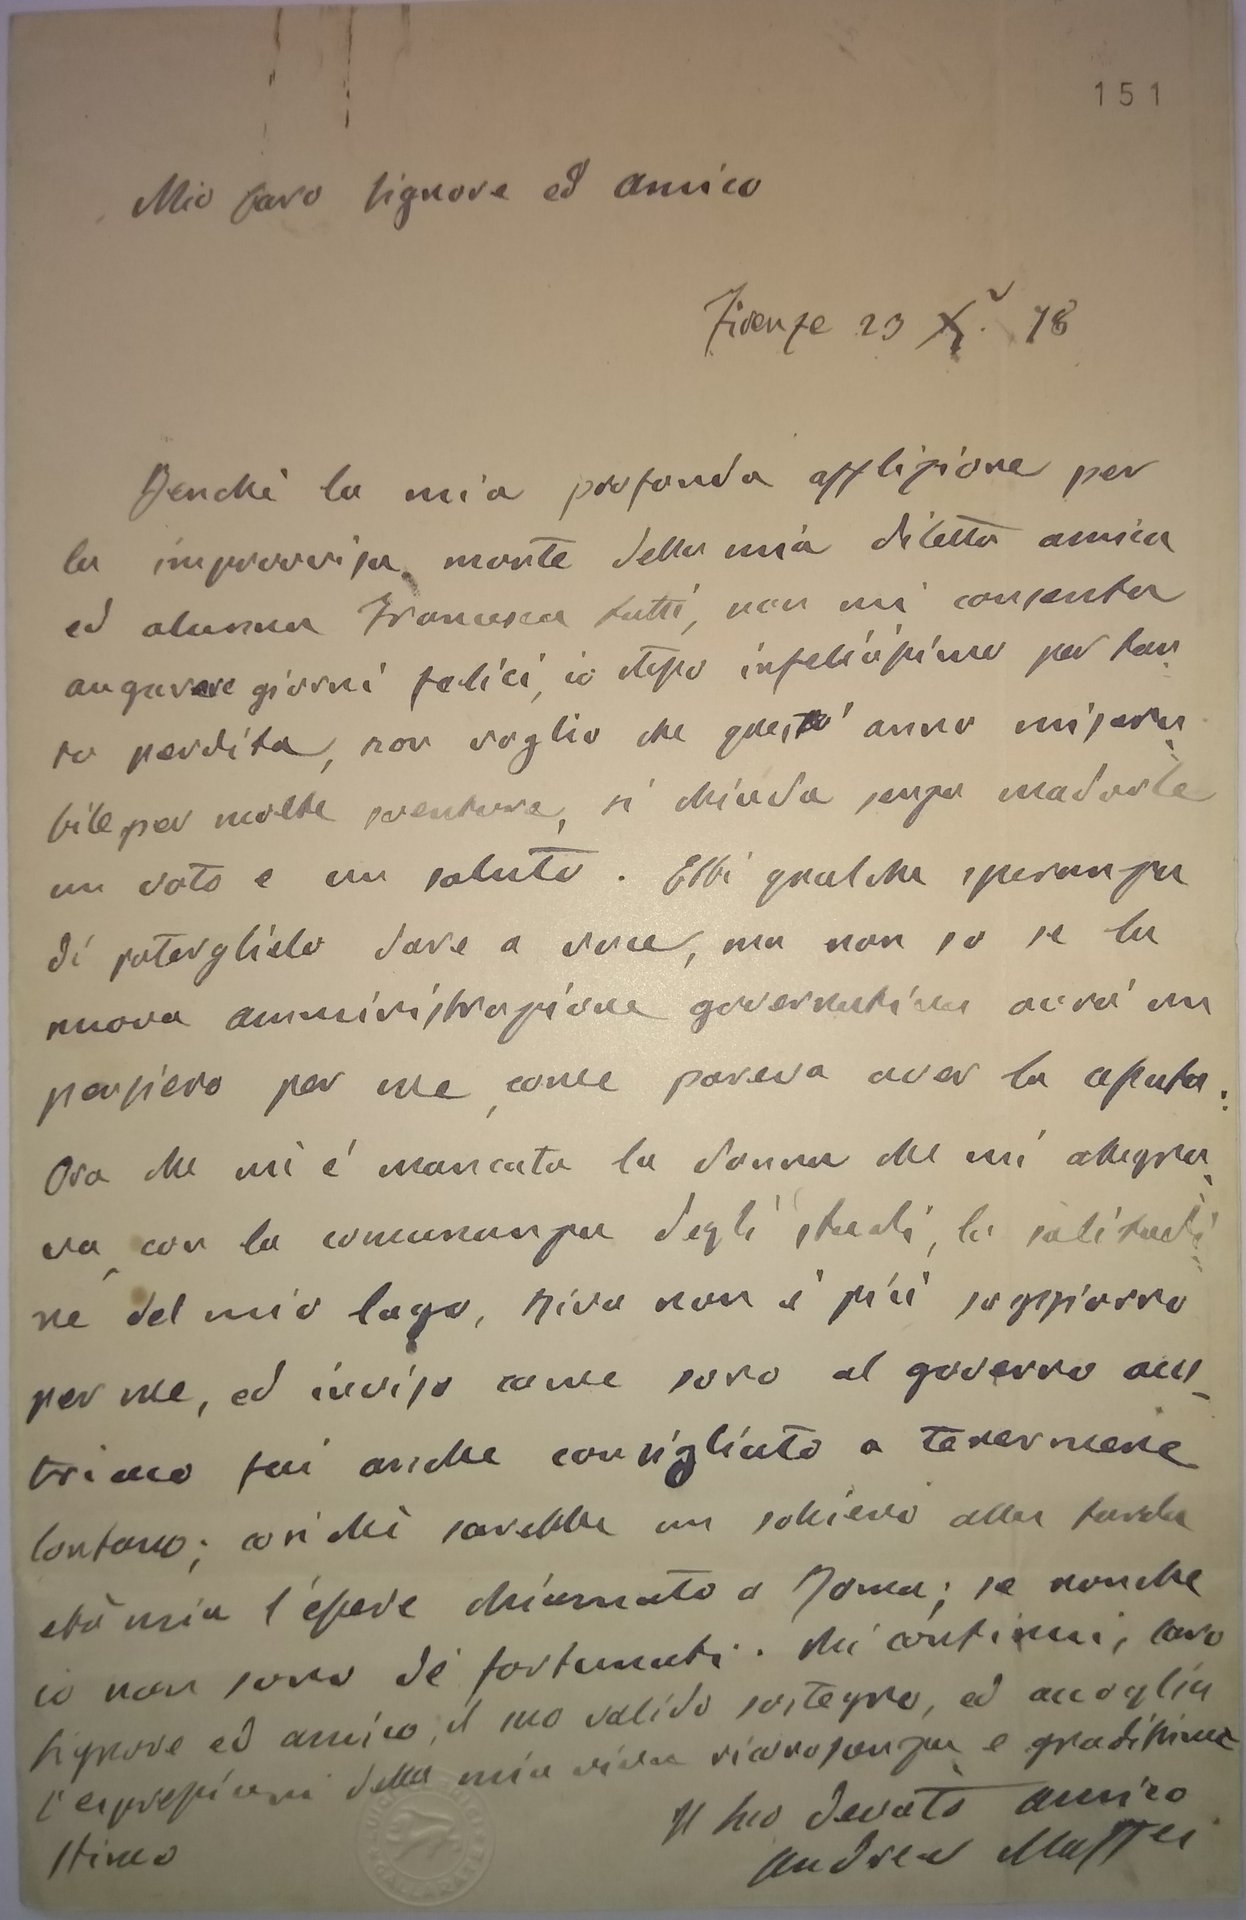 151
Mio Caro Signore ed amico
Firenze 23 Xr. 78
Benchè la mia profonda afflizione per
la improvvisa morte della mia diletta amica
ed alunna Francesca Lutti, non mi consenta
augurare giorni felici, io stesso infelicissimo per tan
ta perdita, non voglio che quest' anno misera
bile per molte sventure, si chiuda senza mandarle
un voto e un saluto. Ebbi qualche speranza
di poterglielo dare a voce, ma non so se la
nuova amministrazione governativa avrà un
pensiero per me, come pareva aver la caduta.
Ora che mi è mancata la donna che mi allegra
va, con la comunanza degli studi, la solitudi
ne del mio lago, Riva non è più soggiorno
per me, ed inviso come sono al governo aus-
triaco fui anche consigliato a tenermene
lontano; cosichè sarebbe un sollievo alla tarda
età mia l'essere chiamato a Roma; se nonche
io non sono de' fortunati. Mi continui, caro
Signore ed amico, il suo valido sostegno, ed accoglia
l'espressioni della mia viva riconoscenza e grandissima
stima
Il suo devoto amico
Andrea Maffei